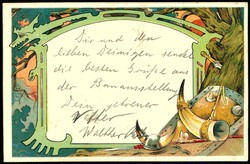 Dir und den
lieben Deinigen sendet
die besten Grüße aus
der Bauausstellung
Dein getreuer
Walther